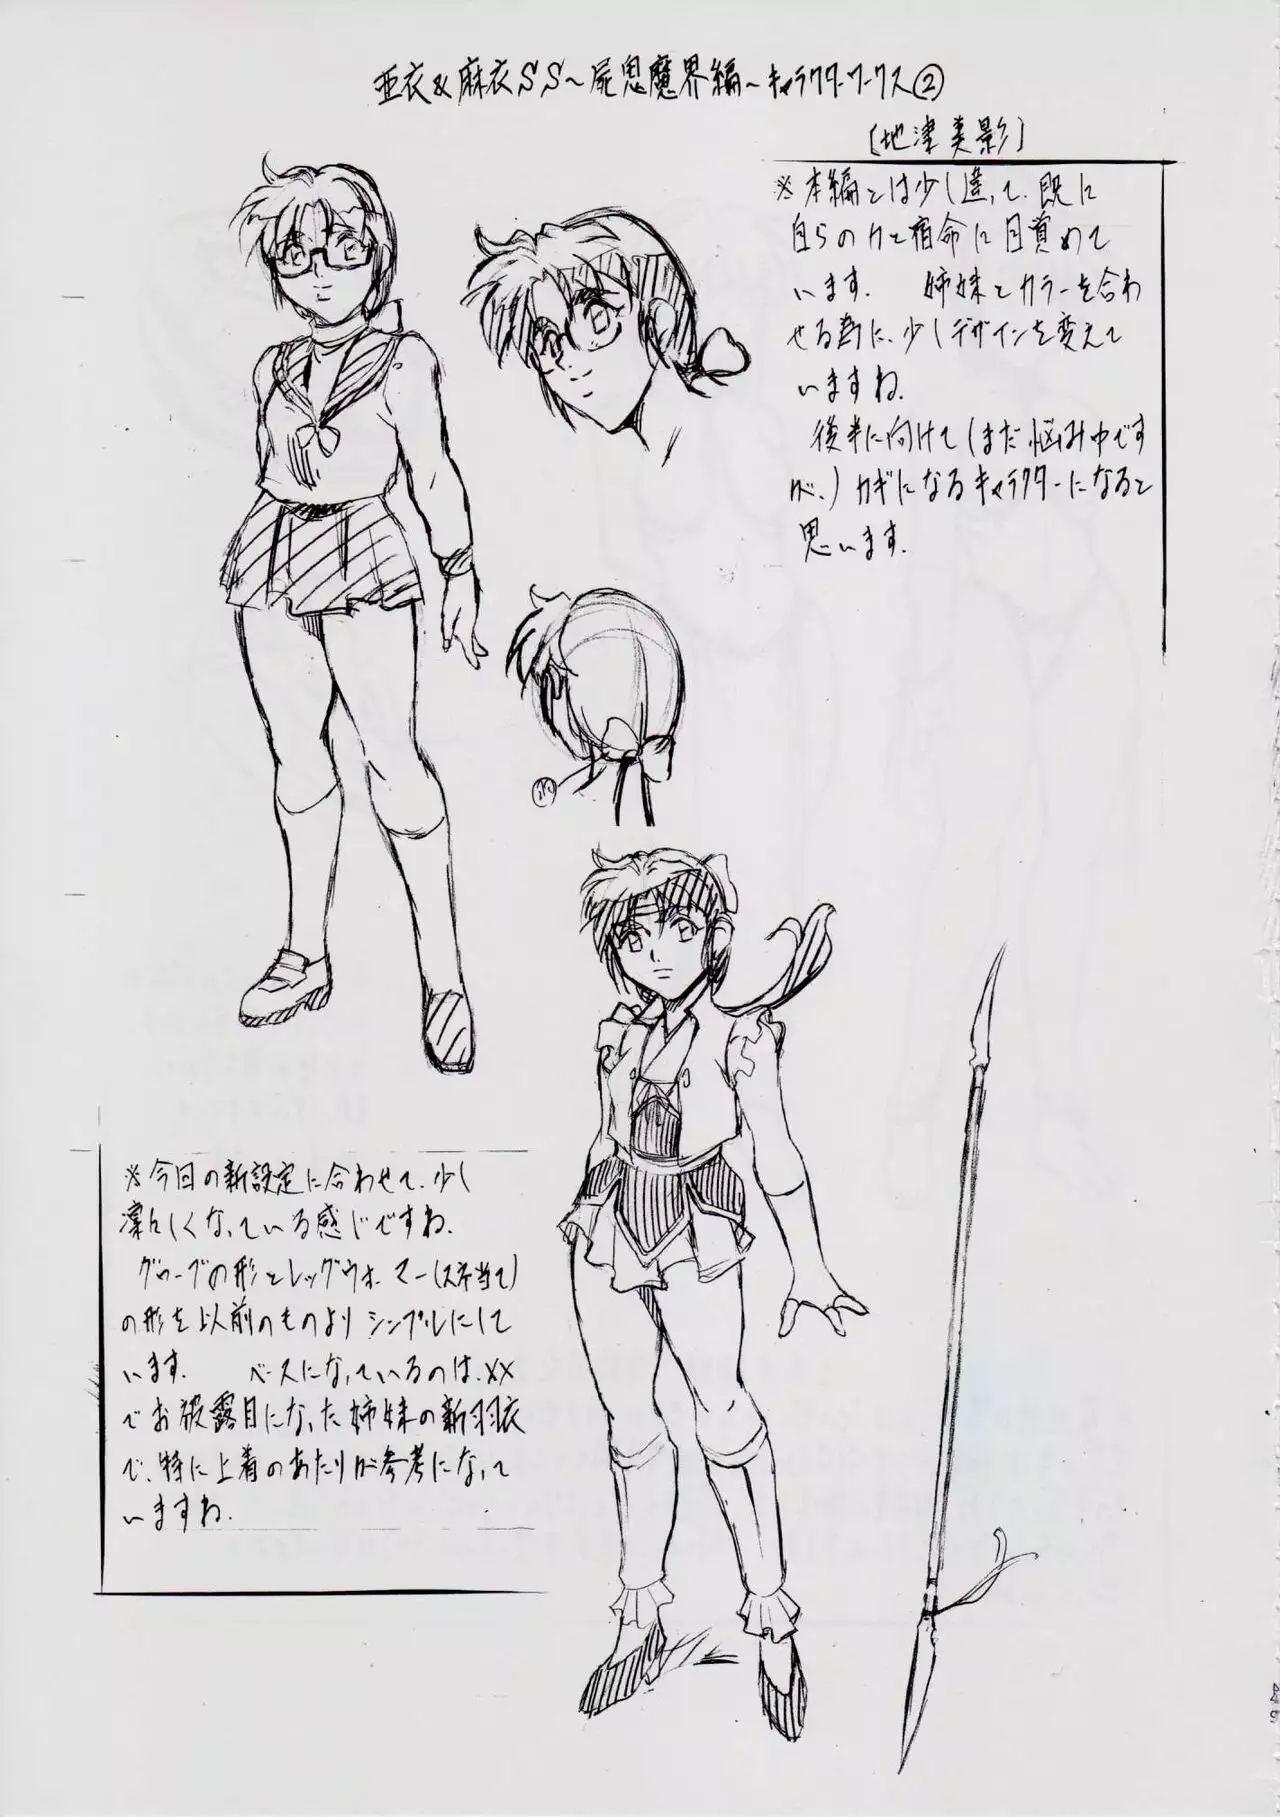 亜衣&麻衣SS～屍鬼魔界編～キャラクターワークス②
〔地津美影〕
※本編とは少し違って、既に
自らの力と宿命に目覚めて
います。 姉妹とカラーを合わ
せる為に、少しデザインを変えて
いますね。
後半に向けて(まだ悩み中です
が、)カギになるキャラクターになると
思います。
※今回の新設定に合わせて、少し
凛々しくなっている感じですね。
グローブの形とレッグウォーマー(スネ当て)
の形を以前のものよりシンプルにして
います。 ベースになっているのは、××
でお披露目になった姉妹の新羽衣
で、特に上着のあたりが参考になって
いますね。